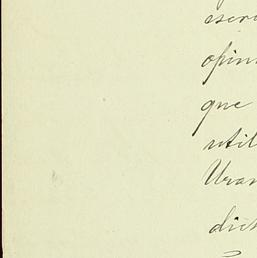 opin
que
util
Uran
dich